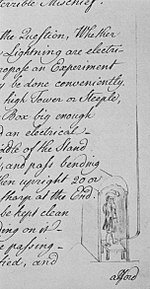 errible Mischief.
the Question, Whether
Lightning are electri-
opose an Experiment
y be done conveniently.
high Tower or Steeple,
Box big enough
nd an electrical
iddle of the Stand
, and pass bending
hen upright 20 or
sharp at the End.
be kept clean
ding on it
e passing
ied, and
afford